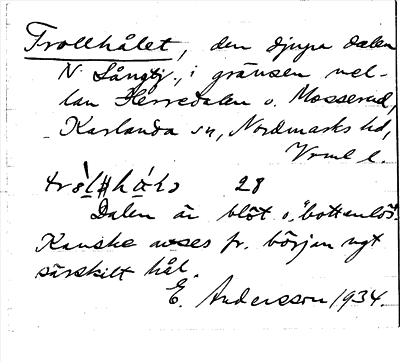 Trollhålet, den djupa dalen
N. Långtj., i gränsen mel-
lan Herredalen o. Mosserud,
Karlanda sn, Nordmarks hd,
Vrml l.
28
Dalen är blöt o. "bottenlös".
Kanske avses fr. början ngt
särskilt hål.
E. Andersson 1934.